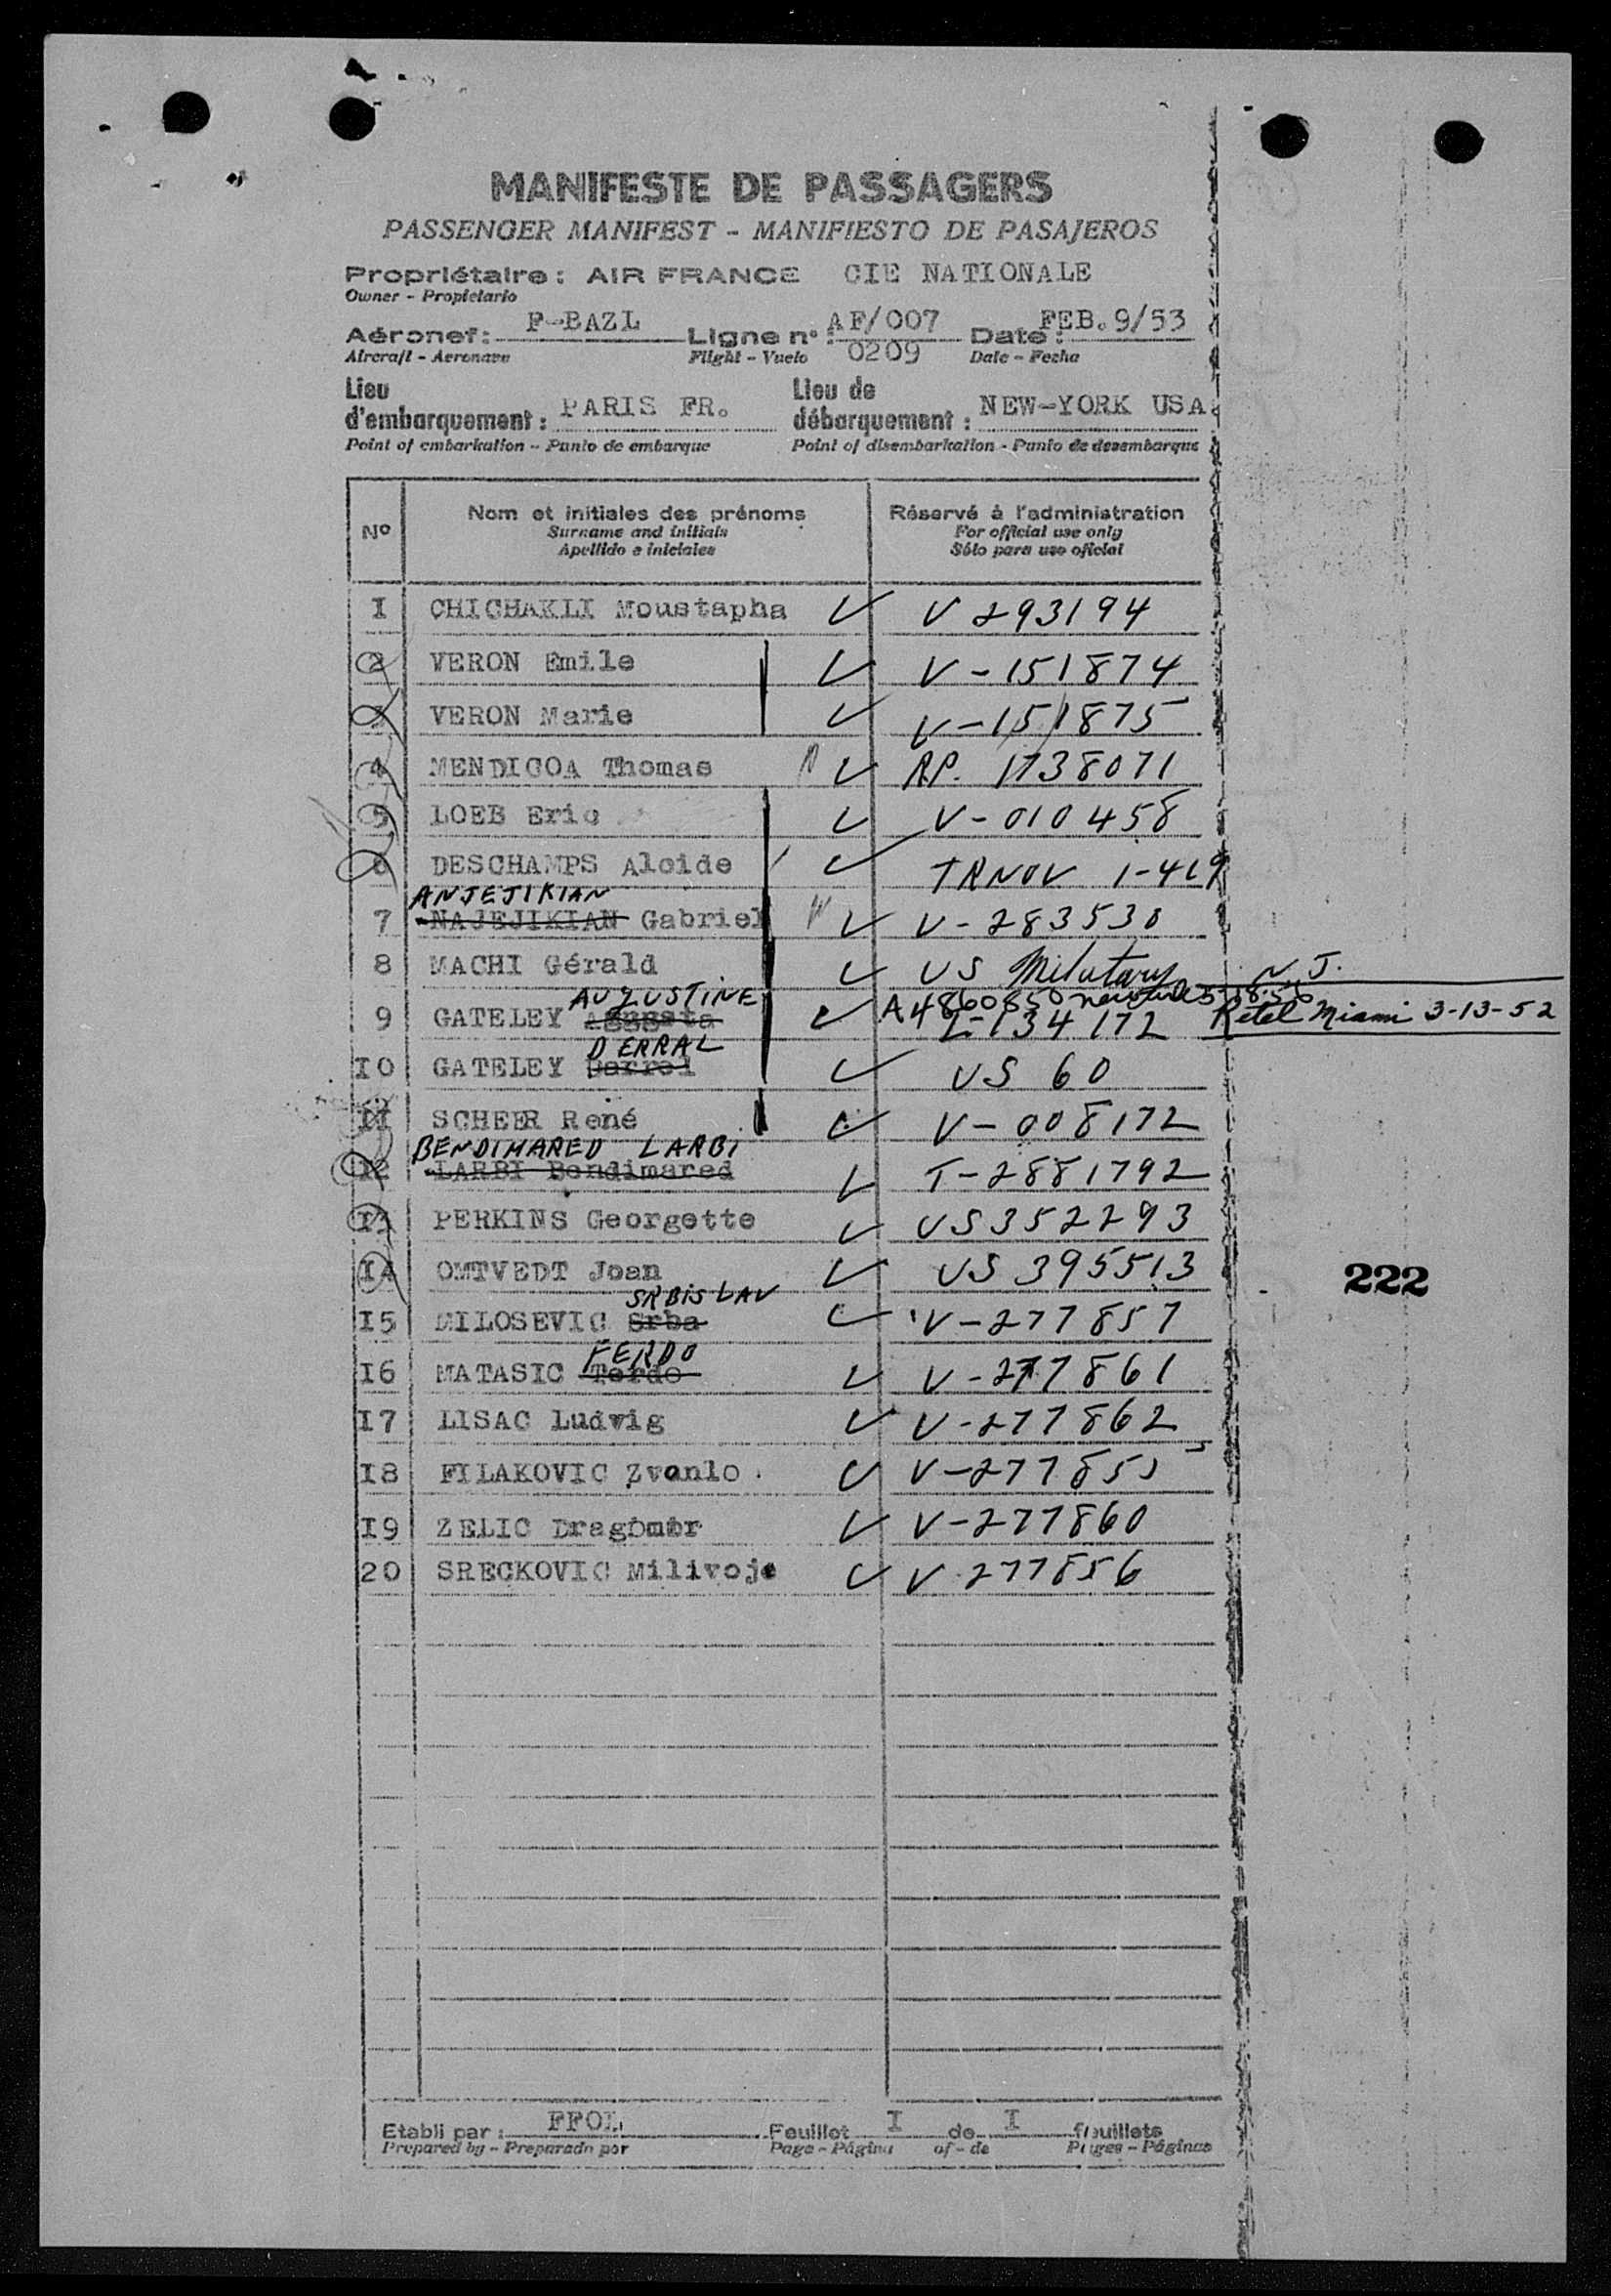 MANIFESTE DE PASSAGERS
PASSENGER MANIFEST - MANIFIESTO DE PASAJEROS
Propriétaire : AIR FRANCE CIE NATIONALE
Owner - Propietario
Aéronef : F-BAZL Ligne n° : AF/007 Date : FEB. 9/53
Aircraft - Aeronave Flight - Vuelo 0209 Date - Fecha
Lieu d'embarquement : PARIS FR. Lieu de débarquement : NEW-YORK USA.
Point of embarkation - Punto de embarque Point of disembarkation - Punto de desembarque
N° Nom et initiales des prénoms Réservé à l'administration
Surname and initials For official use only
Apellido e iniciales Sólo para uso oficial
I CHICHAKLI Moustapha V 293194
2 VERON Emile V-151874
3 VERON Marie V-151875
4 MENDICOA Thomas RP. 1738071
5 LOEB Eric V-010458
6 DESCHAMPS Alcide TRNOV 1-419
ANJEJIKIAN
7 NAJEJIKIAN Gabriel V-283530
8 MACHI Gérald US Military N.J.
AUGUSTINE A4860850
9 GATELEY 2-134172 Retel Miami 3-13-52
DERRAL
IO GATELEY Darrel US 60
II SCHEER René V-008172
BENDIMARED LARBI
I2 LARBI Bendimared T-2881792
I3 PERKINS Georgette US352293
I4 OMTVEDT Joan US 395513
222
SRBISLAV
I5 MILOSEVIC Srba V-277857
FERDO
I6 MATASIC Terdo V-277861
I7 LISAC Ludvig V-277862
I8 FILAKOVIC Zvonlo V-277855
I9 ZELIC Dragomir V-277860
20 SRECKOVIC Milivoje V 277856
Etabli par : FFOL Feuillet I de I feuillets
Prepared by - Preparado por Page - Página of - de Pages - Páginas